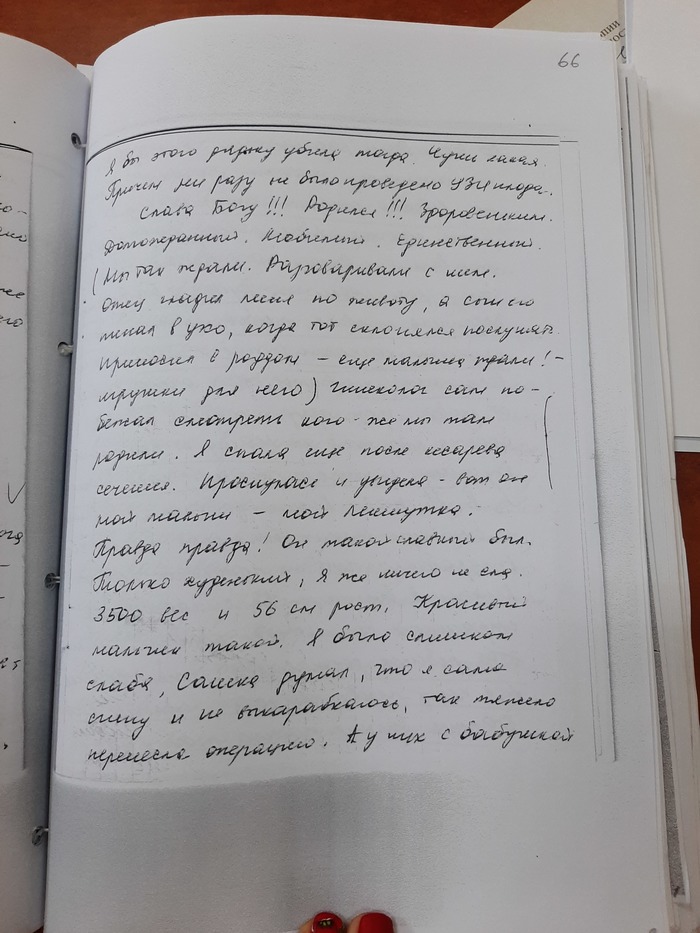 66
Я бы этого дядьку убила тогда. Чушь какая.
Причем ни разу не было проведено УЗИ плода.
Слава Богу!!! Родился!!! Здоровеньким.
Долгожданный. Любимый. Единственный.
(Мы так ждали. Разговаривали с ним.
Отец гладил меня по животу, а сын его
пинал в ухо, когда тот склонялся послушать.
приносил в роддом – еще мальчика ждали! –
игрушки для него) Гинеколог сам по-
бежал смотреть кого-же мы там
родили. Я спала еще после кесарева
сечения. Проснулась и увидела – вот он
мой мальчик – мой
Правда правда! Он такой славный был.
Только худенький, я же ничего не ела.
3500 вес и 56 см рост. Красивый
мальчик такой. Я была слишком
слаба, Сашка думал, что я сама
сгину и не выкарабкаюсь, так тяжело
перенесла операцию. А у них с бабушкой